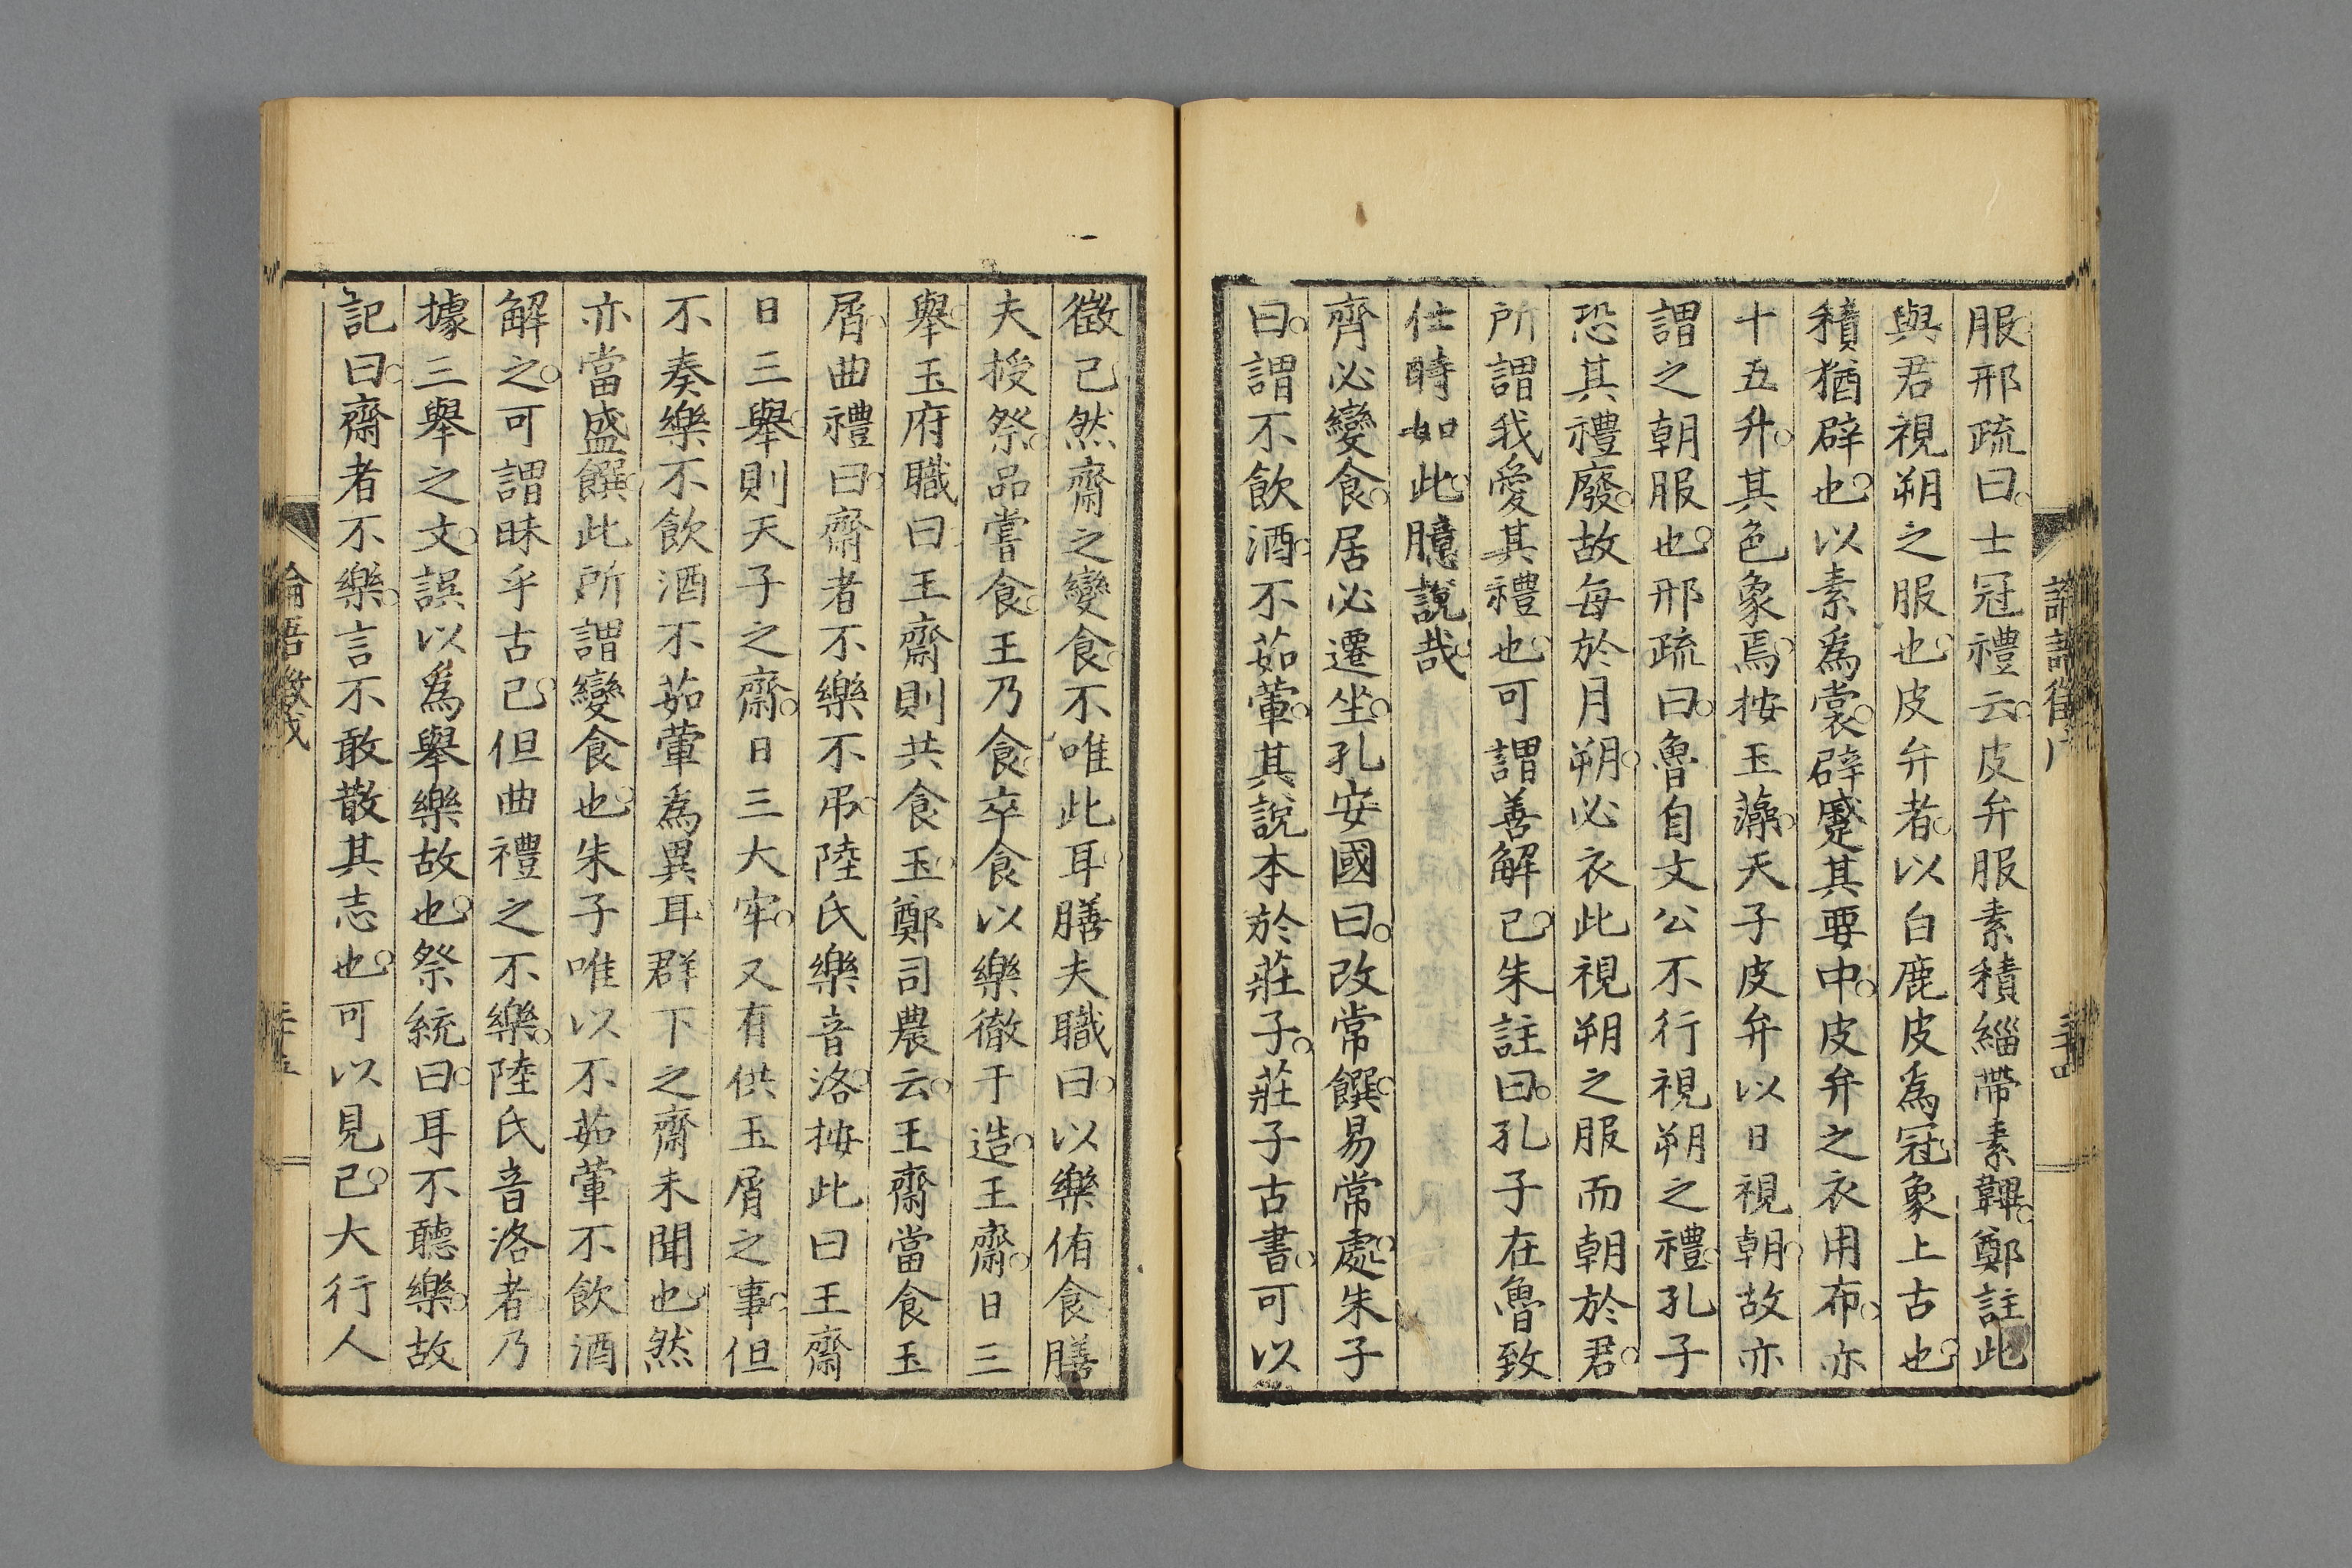 服邢疏曰士冠禮云皮弁服素積緇帶素韠鄭註此
與君視朔之服也皮弁者以白鹿皮爲冠象上古也
積猶辟也以素爲裳辟蹙其要中皮弁之衣用布亦
十五升其色象焉按玉藻天子皮弁以日視朝故亦
謂之朝服也邢疏曰魯自文公不行視朔之禮孔子
恐其禮廢故每於月朔必衣此視朔之服而朝於君
所謂我愛其禮也可謂善解已朱註曰孔子在魯致
仕時如此臆說哉
齊必變食居必遷坐孔安國曰改常饌易常處朱子
曰謂不飲酒不茹葷其說本於莊子莊子古書可以
徵已然齋之變食不唯此耳膳夫職曰以樂侑食膳
夫授祭品嘗食王乃食卒食以樂徹于造王齋日三
舉玉府職曰王齋則共食玉鄭司農云王齋當食玉
屑曲禮曰齋者不樂不弔陸氏樂音洛按此曰王齋
日三舉則天子之齋日三大牢又有供玉屑之事但
不奏樂不飲酒不茹葷爲異耳群下之齋未聞也然
亦當盛饌此所謂變食也朱子唯以不茹葷不飲酒
解之可謂昧乎古已但曲禮之不樂陸氏音洛者乃
據三舉之文誤以爲舉樂故也祭統曰耳不聽樂故
記曰齋者不樂言不敢散其志也可以見已大行人
論語徵戊